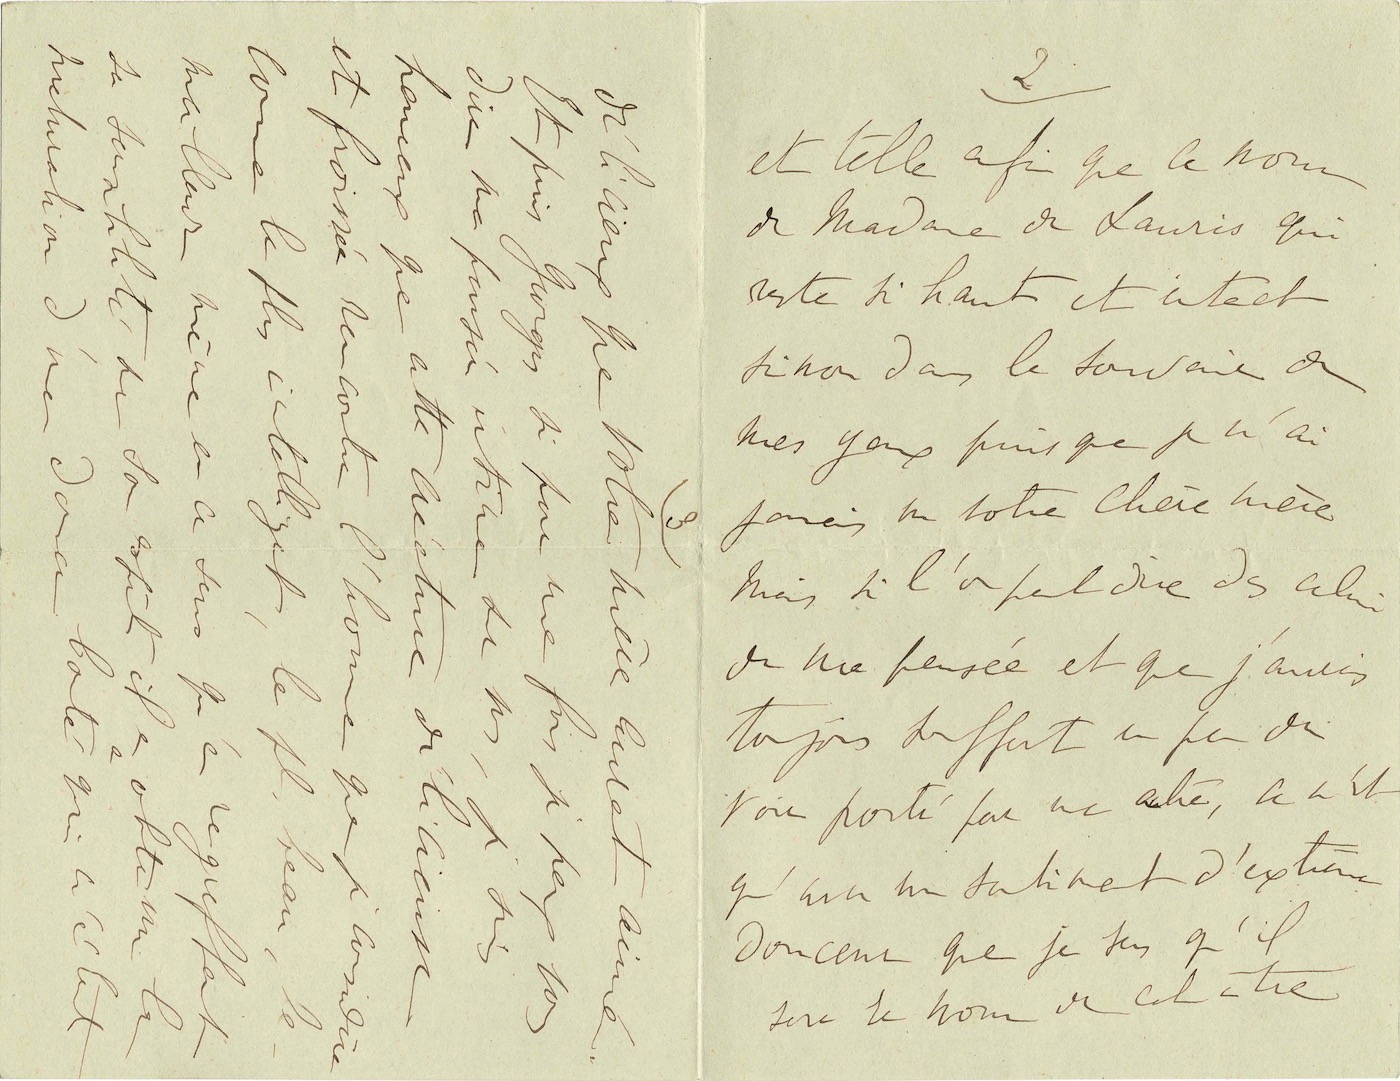 2
et telle afin que ce nom
de Madame de Lauris qui
reste si haut et intact
sinon dans le souvenir de
mes yeux puisque je n'ai
jamais vu votre chère mère
mais si l'on peut dire dans celui
de ma pensée et que j'aurais
toujours souffert un peu de
voir porté par une autre, ce n'est
qu'avec un sentiment d'extrême
douceur que je sens qu'il
sera le nom de cet être
3
délicieux que votre mère aurait aimé..
Et puis Georges si pour une fois je peux vous
dire ma pensée intime sur vous, je suis
heureux que cette créature délicieuse
et froissée rencontre l'homme que je considère
comme le plus intelligent, le pl. beau, le
meilleur même en ce sens qu'en
sa sensibilité sur son esprit il a obtenu la
maturation d'une bonté qui n'était